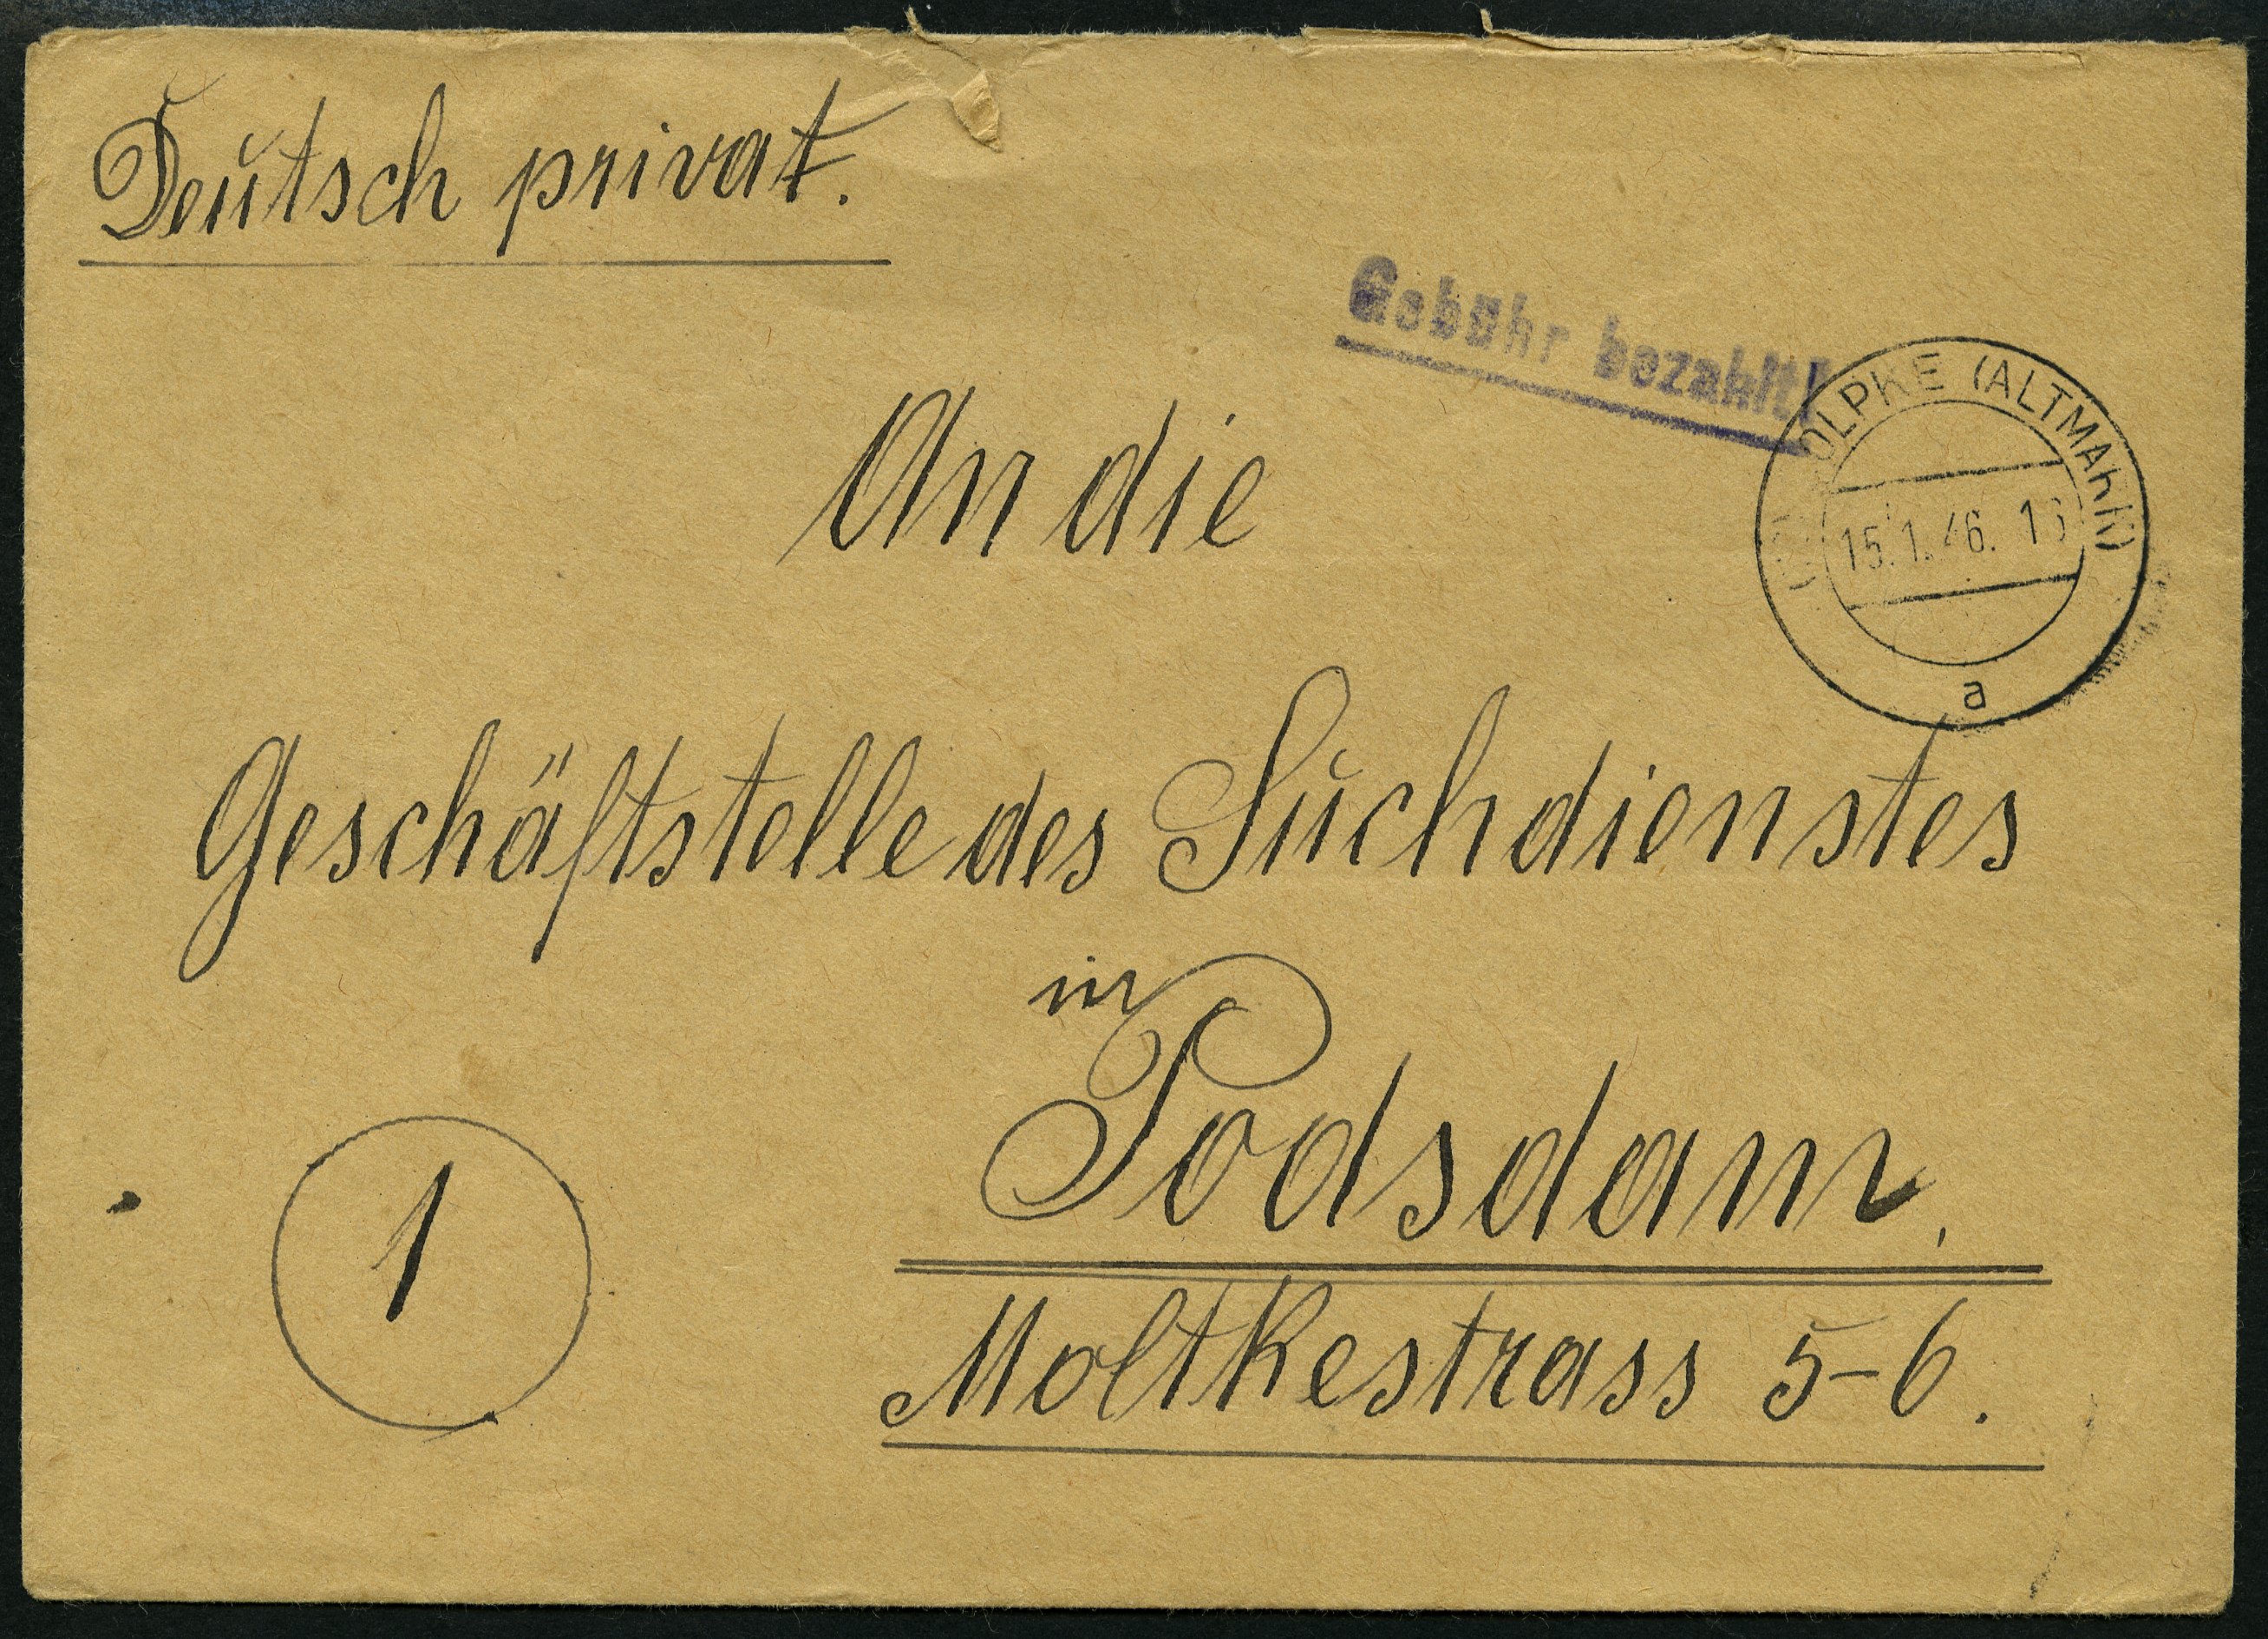 Deutsch privat.
Gebühr bezahlt!
OLPKE (ALTMARK)
15.1.46.
a
An die
Geschäftstelle des Suchdienstes
in
Podsdam.
Moltkestrass 5-6.
1